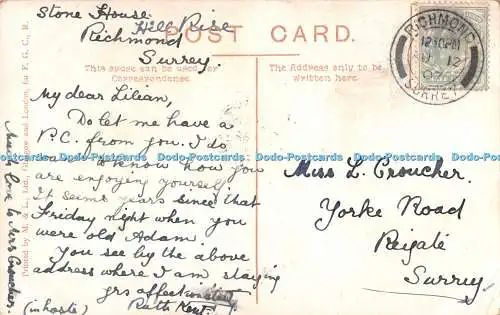 Stone House.
Hill Rise
Richmond
Surrey.
POST CARD.
This space can be used for
Correspondence.
The Address only to be
written here.
RICHMOND
SURREY
My dear Lilian,
Do let me have a
P.C. from you. I do
want to know how you
are enjoying yourself.
It seems years since that
Friday night when you
were old Adam.
You see by the above
address where I am staying
yrs affectionately
(in haste) Ruth Kent.
Much love to Mrs Croucher.
Printed by M. & L., Ltd., Glasgow and London, for F. G. C., R.
Miss L. Croucher.
Yorke Road
Reigate
Surrey
Dodo-Postcards Dodo-Postcards Dodo-Postcards Dodo-Postcards Dodo-Postcards Dodo-Postcards